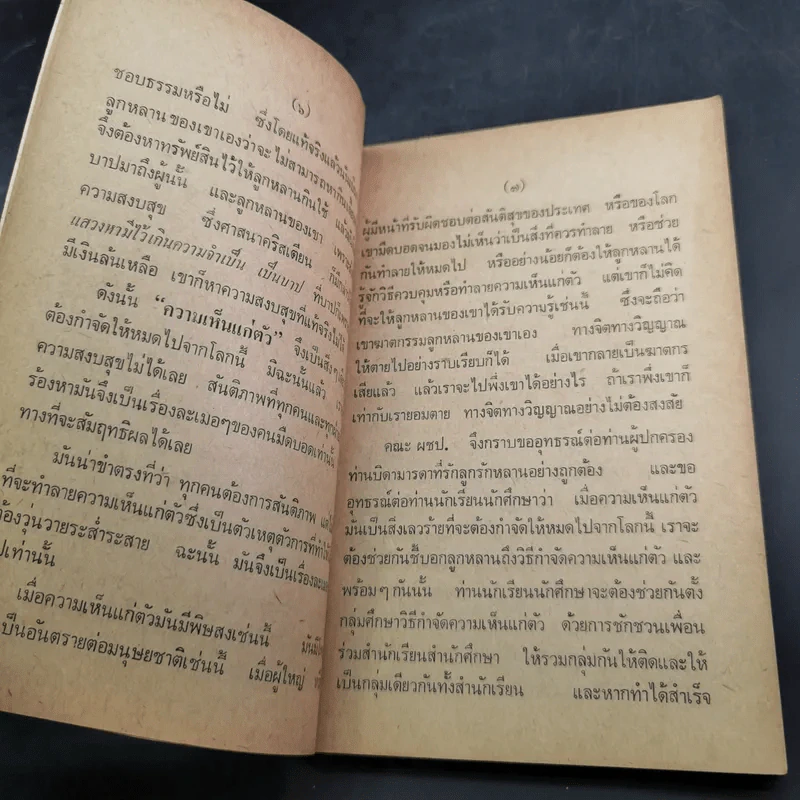 (๖)
ชอบธรรมหรือไม่ ซึ่งโดยแท้จริงแล้ว
ลูกหลานของเขาเองว่าจะไม่สามารถหากิน
จึงต้องหาทรัพย์สินไว้ให้ลูกหลานกินใช้ แล้ว
บาปมาถึงผู้นั้น และลูกหลานของเขา เพราะ
ความสงบสุข ซึ่งศาสนาคริสเตียน ก็
แสวงหามีไว้เกินความจำเป็น เป็นบาป ที่บาป
มีเงินล้นเหลือ เขาก็หาความสงบสุขที่แท้จริงไม่ได้
ดังนั้น "ความเห็นแก่ตัว" จึงเป็นสิ่ง
ต้องกำจัดให้หมดไปจากโลกนี้ มิฉะนั้นแล้ว
ความสงบสุขไม่ได้เลย สันติภาพที่ทุกคนและทุก
ร้องหามันจึงเป็นเรื่องละเมอๆของคนมืดบอดเท่านั้น
ทางที่จะสัมฤทธิผลได้เลย
มันน่าขำตรงที่ว่า ทุกคนต้องการสันติภาพ แต่
ที่จะทำลายความเห็นแก่ตัวซึ่งเป็นตัวเหตุตัวการที่ทำให้
ต้องวุ่นวายระส่ำระสาย ฉะนั้น มันจึงเป็นเรื่อง
ปเท่านั้น
เมื่อความเห็นแก่ตัวมันมีพิษสงเช่นนี้ มัน
เป็นอันตรายต่อมนุษยชาติเช่นนี้ เมื่อผู้ใหญ่
(๗)
ผู้มีหน้าที่รับผิดชอบต่อสันติสุขของประเทศ หรือของโลก
เขามืดบอดจนมองไม่เห็นว่าเป็นสิ่งที่ควรทำลาย หรือช่วย
กันทำลายให้หมดไป หรืออย่างน้อยก็ต้องให้ลูกหลานได้
รู้จักวิธีควบคุมหรือทำลายความเห็นแก่ตัว แต่เขาก็ไม่คิด
ที่จะให้ลูกหลานของเขาได้รับความรู้เช่นนี้ ซึ่งจะถือว่า
เขาฆาตกรรมลูกหลานของเขาเอง ทางจิตทางวิญญาณ
ให้ตายไปอย่างราบเรียบก็ได้ เมื่อเขากลายเป็นฆาตกร
เสียแล้ว แล้วเราจะไปพึ่งเขาได้อย่างไร ถ้าเราพึ่งเขาก็
เท่ากับเรายอมตาย ทางจิตทางวิญญาณอย่างไม่ต้องสงสัย
คณะ ผชป. จึงกราบขออุทธรณ์ต่อท่านผู้ปกครอง
ท่านบิดามารดาที่รักลูกรักหลานอย่างถูกต้อง และขอ
อุทธรณ์ต่อท่านนักเรียนนักศึกษาว่า เมื่อความเห็นแก่ตัว
มันเป็นสิ่งเลวร้ายที่จะต้องกำจัดให้หมดไปจากโลกนี้ เราจะ
ต้องช่วยกันชี้บอกลูกหลานถึงวิธีกำจัดความเห็นแก่ตัว และ
พร้อมๆกันนั้น ท่านนักเรียนนักศึกษาจะต้องช่วยกันตั้ง
กลุ่มศึกษาวิธีกำจัดความเห็นแก่ตัว ด้วยการชักชวนเพื่อน
ร่วมสำนักเรียนสำนักศึกษา ให้รวมกลุ่มกันให้ติดและให้
เป็นกลุ่มเดียวกันทั้งสำนักเรียน และหากทำได้สำเร็จ